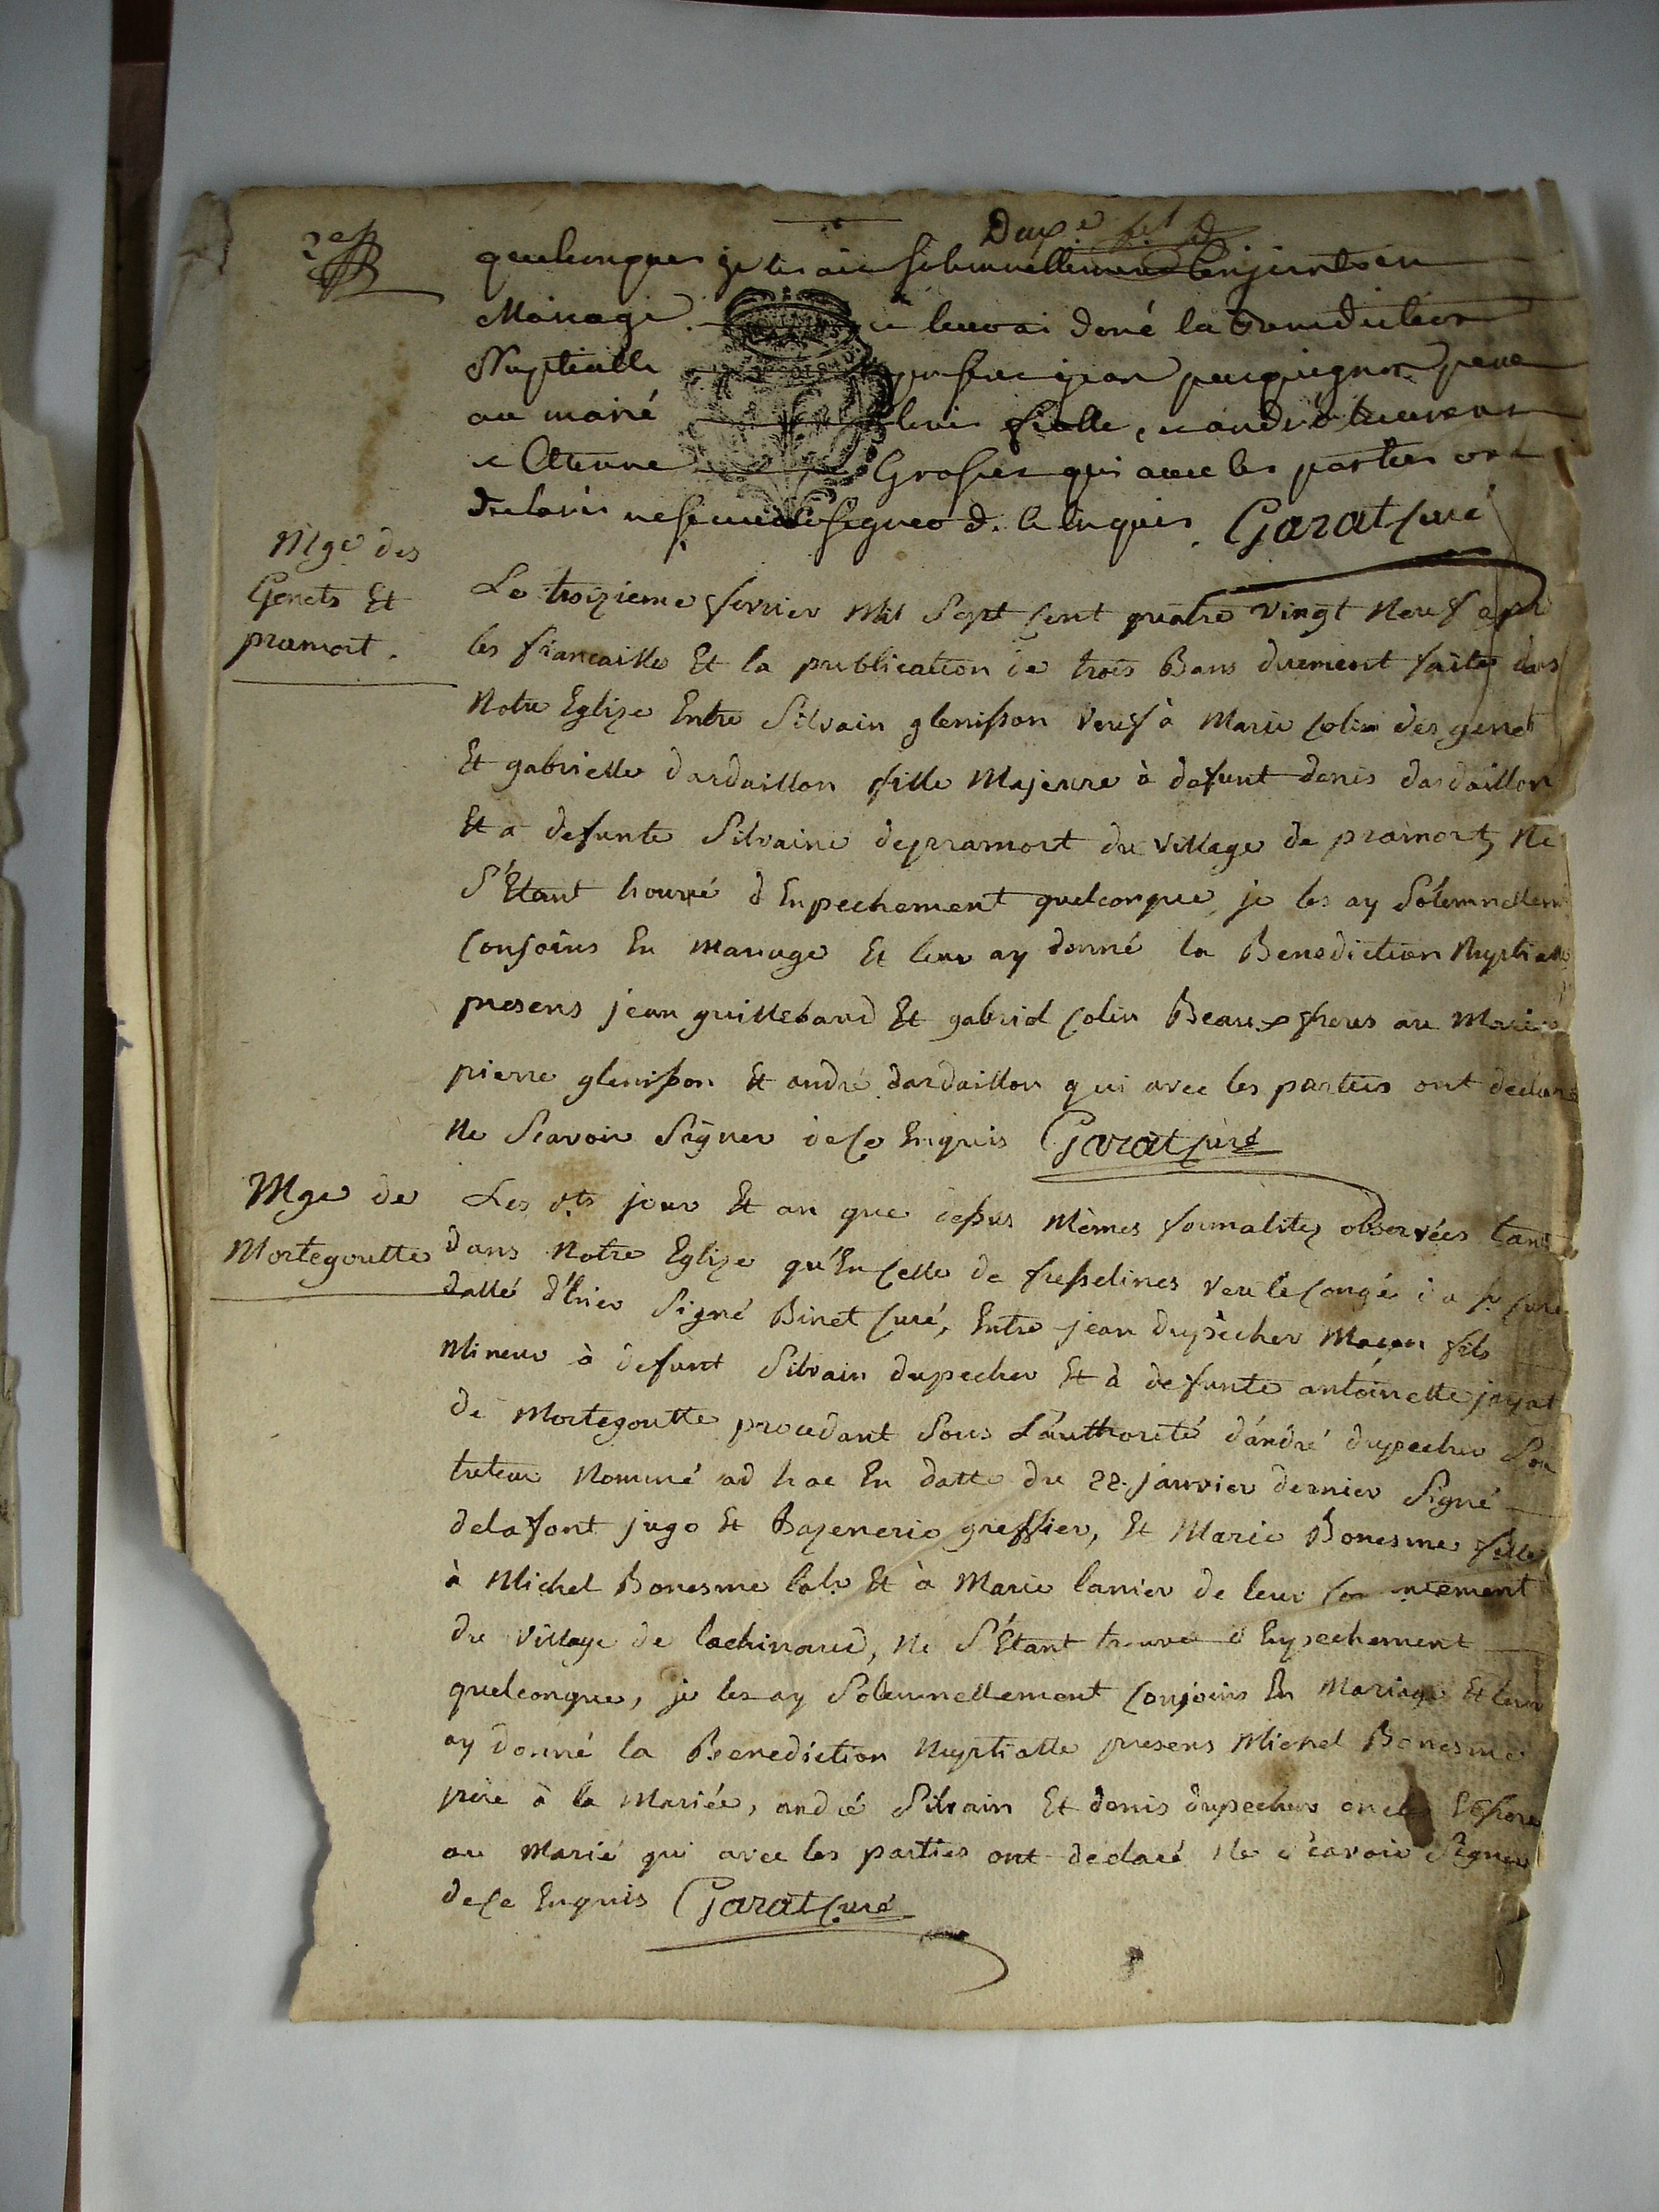 quelconques je les ai solennellement conjoints en
Mariage. et leur ai doné la benediction
Nuptialle jean pere
au marié
et Etienne qui avec les parties ont
declaré ne scavoir signer d. ce enquis. Garat curé
Mge des
Genets Et
pramort.
Le troizieme fevrier Mil Sept Cent quatre vingt Neuf apr
les fiancaille Et la publication de trois Bans duement faites dans
Notre Eglize Entre Silvain glenisson veuf à Marie Colin des genet
Et gabrielle dardaillon fille Majeure à defunt denis dardaillon
Et a defunte Silvaine depramort du village de pramort, Ne
S'Etant trouvé d'Enpechement quelconque, je les ay Solemnellem
Conjoins En mariage Et leur ay donné la Benediction Nuptialle
presens jean guillebaud Et gabriel Colin Beauxfreres au Marié
pierre glenisson Et andré dardaillon qui avec les parties ont declaré
Ne Scavoir Signer de Ce Enquis Garat curé
Mge de
Mortegoutte
Les dts jour Et an que dessus Mêmes formalitez observées tant
dans Notre Eglize qu'En Celle de fresselines veu le Congé du Sr Curé
datté d'hier Signé Binet Curé, Entre jean dupecher Maçon fils
Mineur à defunt Silvain dupecher Et à defunte antoinette jayat
de Mortegoutte procedant Sous L'authorité d'andré dupecher Son
tuteur Nommé ad hoc En datte du 22. janvier dernier Signé
delafont juge Et Bazenerie greffier, Et Marie Bonesme fille
à Michel Bonesme labr Et à Marie lanier de leur
du village de lachinaud, Ne S'Etant trouvé d'Enpechement
quelconque, je les ay Solemnellement Conjoins En Mariage Et leur
ay donné la Benediction Nuptialle presens Michel Bonesme
père à la Mariée, andré Silvain Et denis dupechers
au Marié qui avec les parties ont declaré Ne Scavoir Signer
de Ce Enquis Garat curé